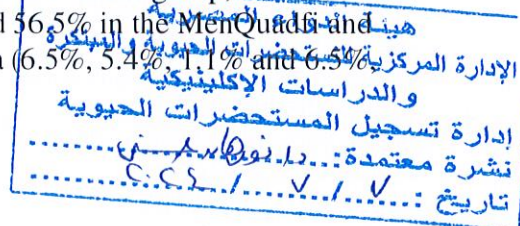 56.5% in the MenQuadfi and
(6.5%, 5.4%, 1.1% and 6.5%,
هيئة الدواء المصرية
الإدارة المركزية للمستحضرات الحيوية والمبتكرة
والدراسات الإكلينيكية
إدارة تسجيل المستحضرات الحيوية
نشرة معتمدة: د/ نورهان
تاريخ : ٧ / ٧ /